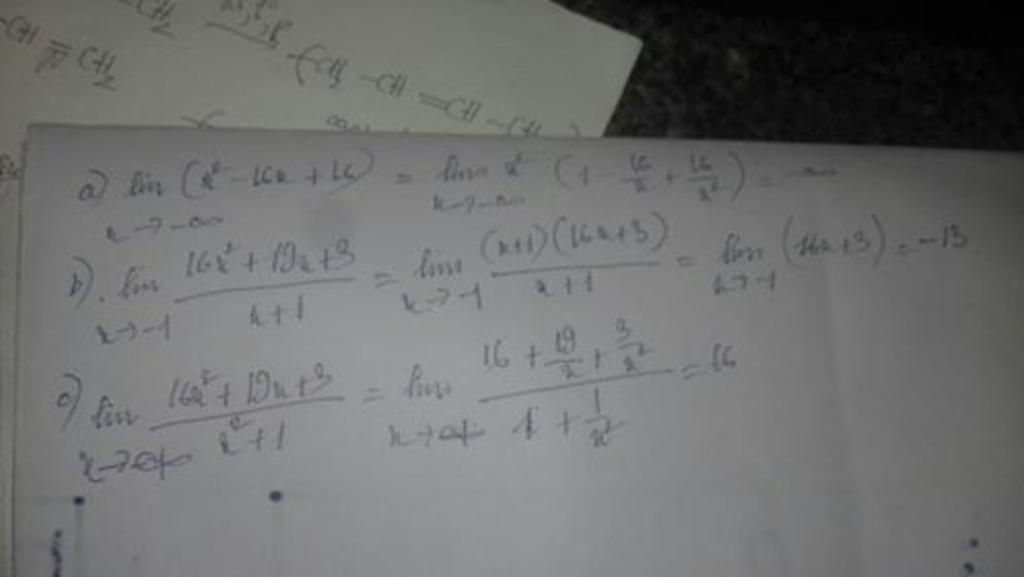 CH2
-CH = CH2
(CH2 - CH = CH - CH
a) lim (x² - 16x + 16) = lim x² (1 - 16/x + 16/x²) = -∞
x → -∞ x → -∞
b) . lim (16x² + 19x + 3)/(x + 1) = lim (x+1)(16x+3)/(x+1) = lim (16x+3) = -13
x → -1 x → -1 x → -1
c) lim (16x² + 19x + 3)/(x² + 1) = lim (16 + 19/x + 3/x²)/(1 + 1/x²) = 16